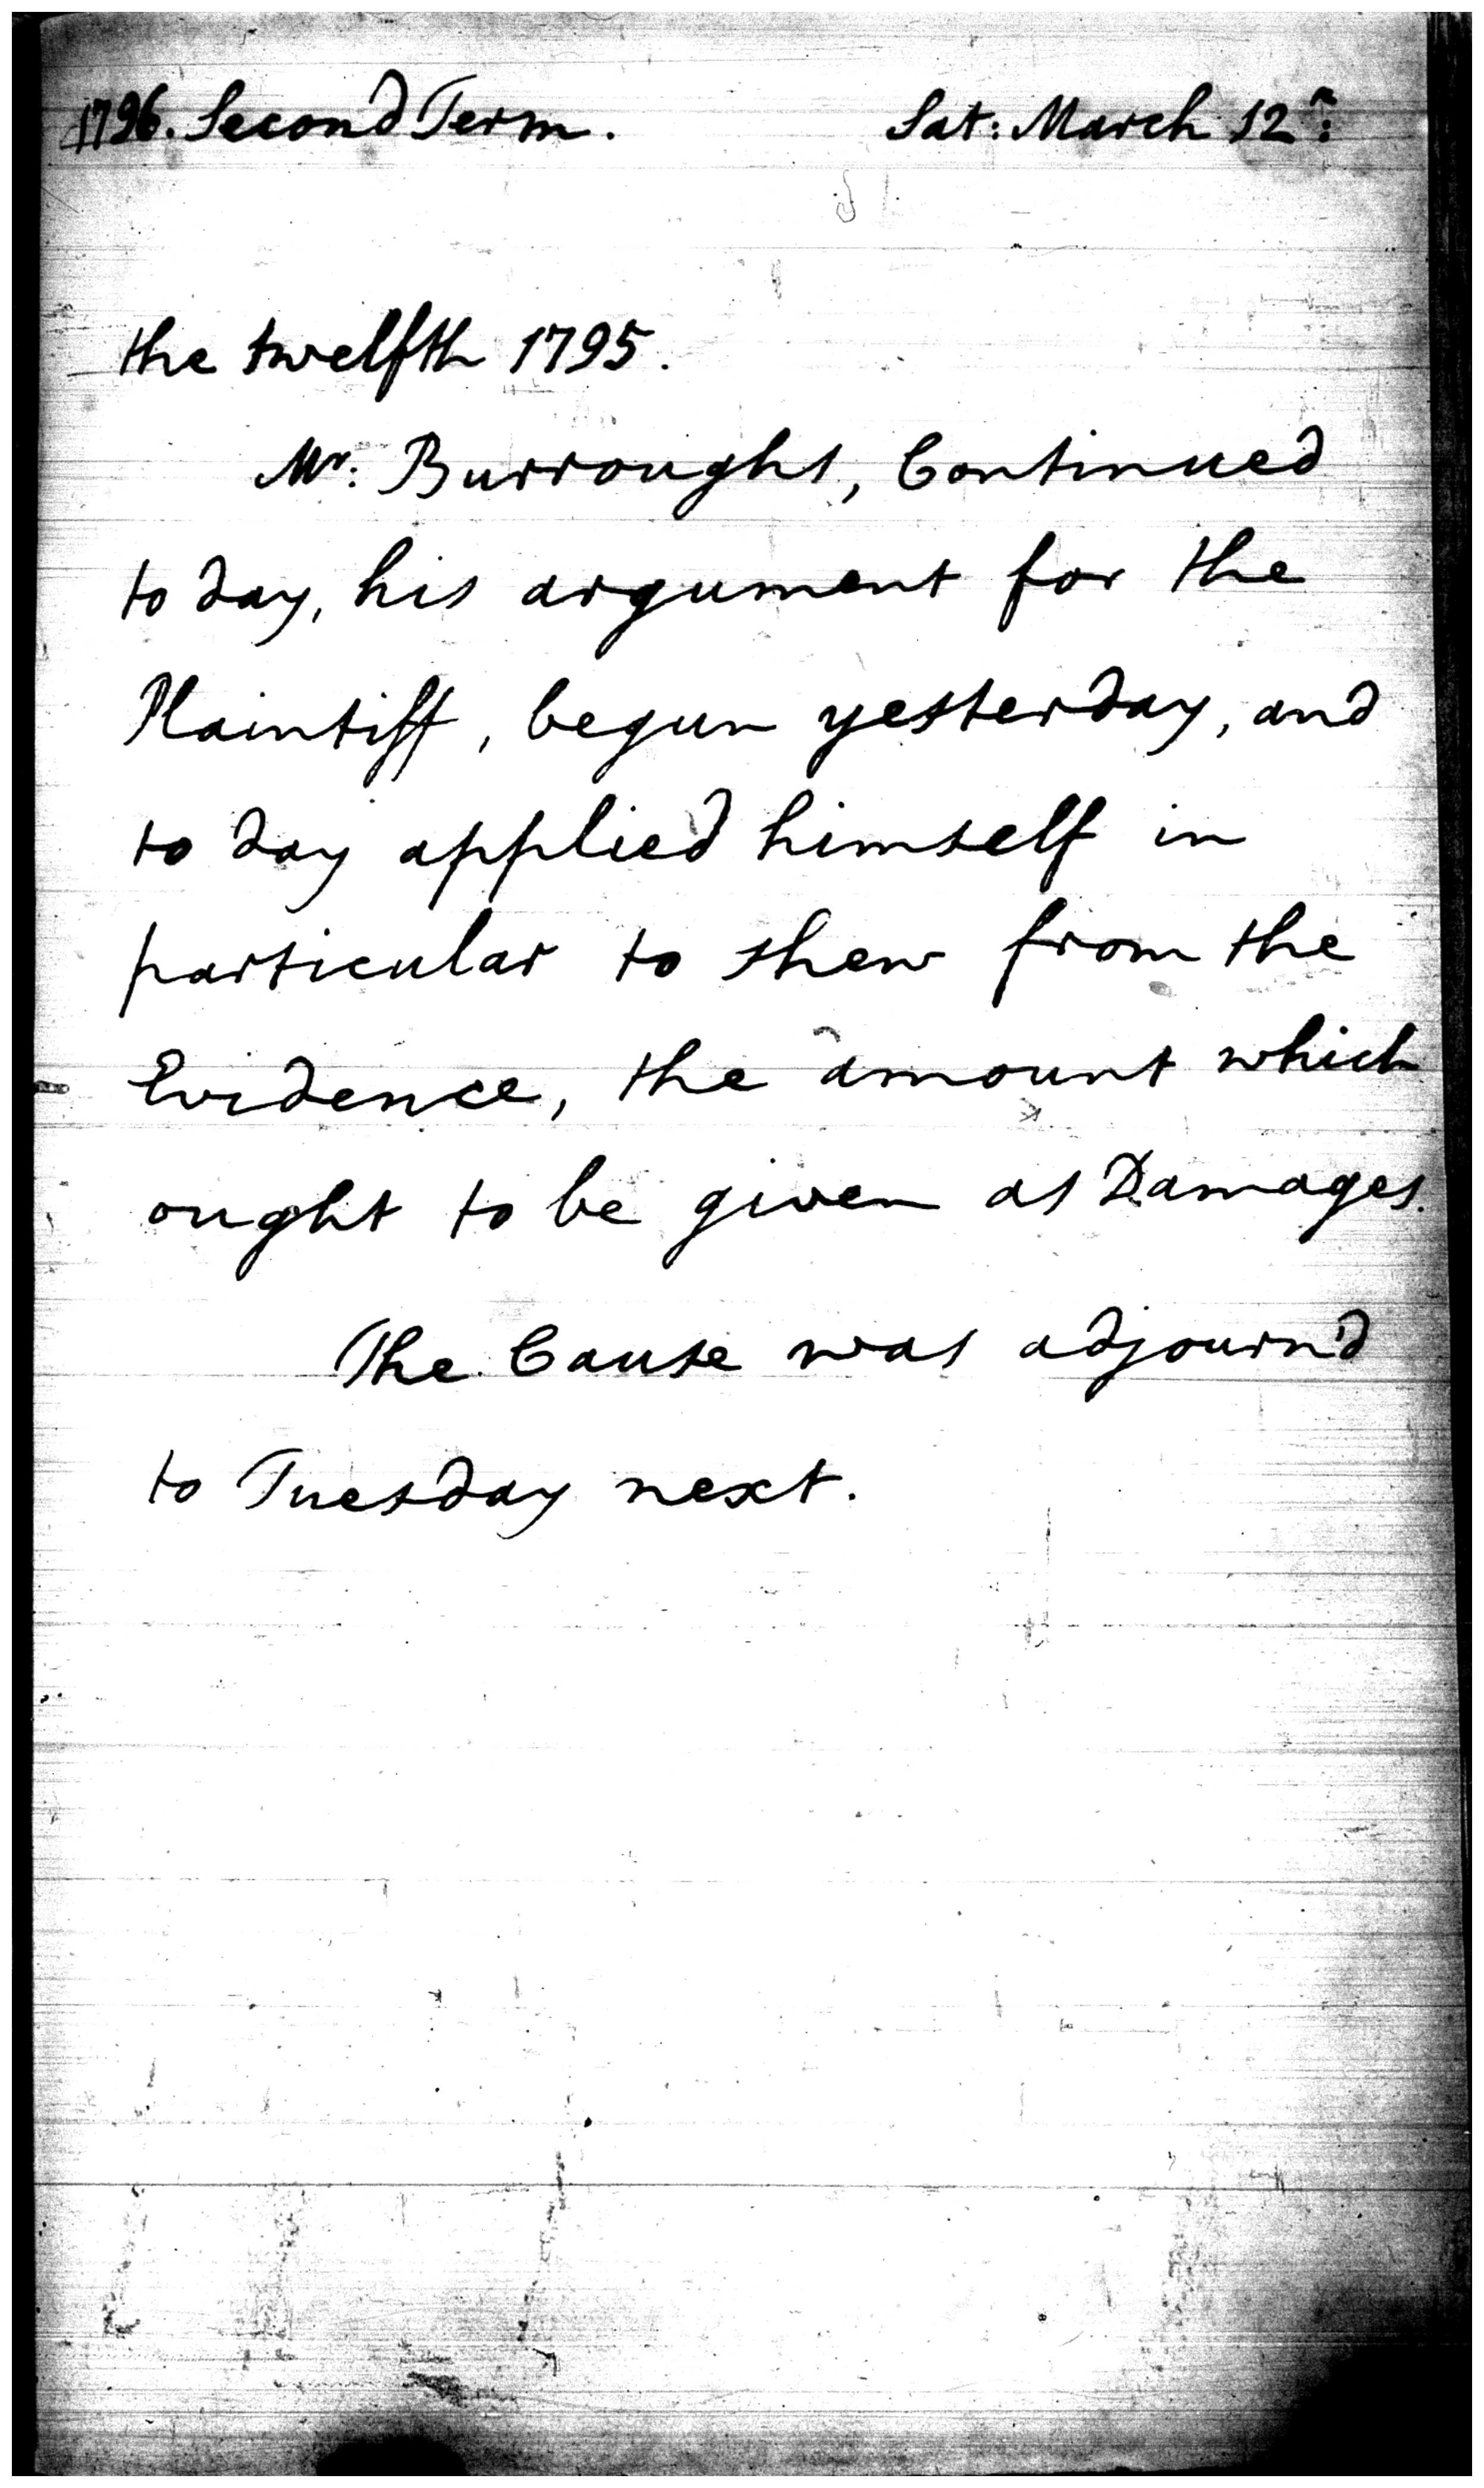 1796. Second Term. Sat: March 12th:
the twelfth 1795.
Mr: Burroughs, Continued
to day, his argument for the
Plaintiff, begun yesterday, and
to day applied himself in
particular to shew from the
Evidence, the amount which
ought to be given as Damages.
The Cause was adjourn'd
to Tuesday next.